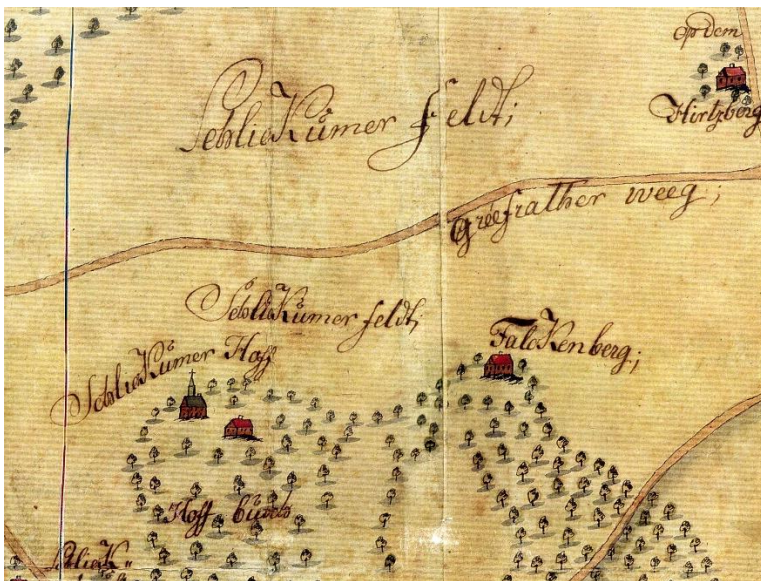 op dem
Hirtzberg
SchlicKumer feldt;
Greefrather weeg;
SchlicKumer feldt;
FalcKenberg;
SchlicKumer Hoff
Hoff büsch
SchlicK=